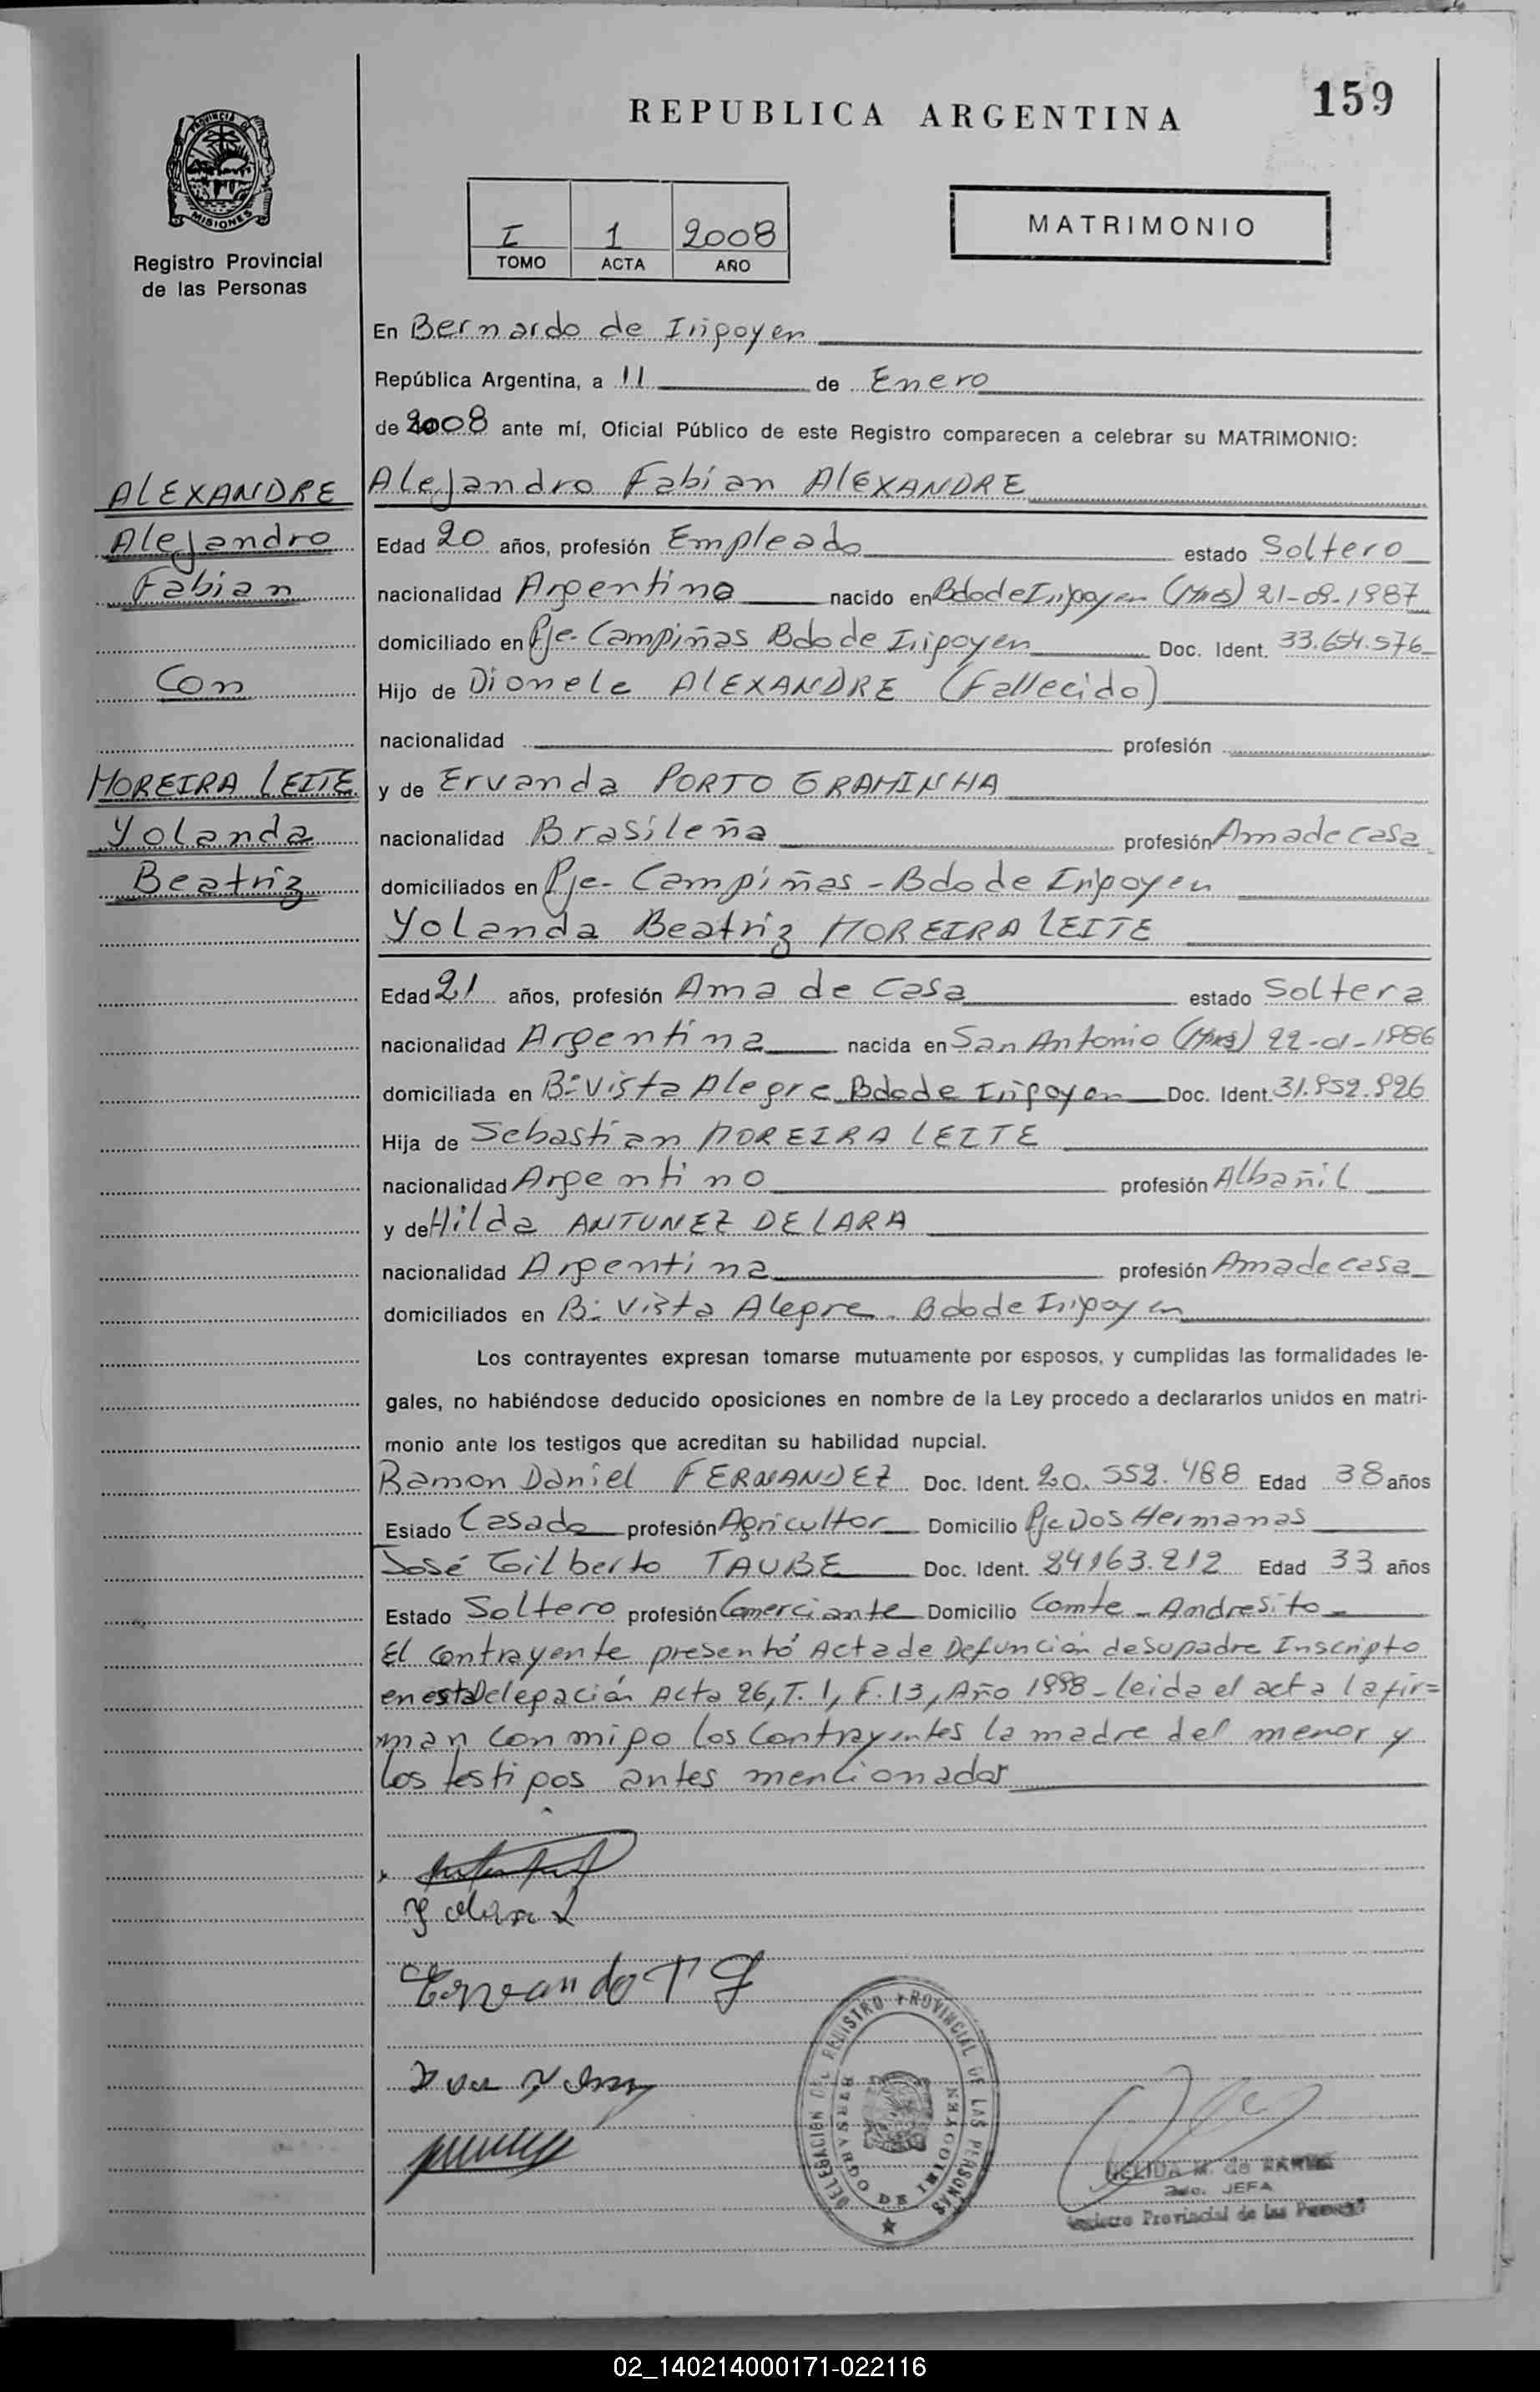 159
REPUBLICA ARGENTINA
PROVINCIA DE
MISIONES
Registro Provincial
de las Personas
I 1 2008
TOMO ACTA AÑO
MATRIMONIO
En Bernardo de Irigoyen
República Argentina, a 11 de Enero
de 2008 ante mí, Oficial Público de este Registro comparecen a celebrar su MATRIMONIO:
ALEXANDRE
Alejandro
Fabian
Con
MOREIRA LEITE
Yolanda
Beatriz
Alejandro Fabian ALEXANDRE
Edad 20 años, profesión Empleado estado Soltero
nacionalidad Argentino nacido en Bdo de Irigoyen (Mnes) 21-09-1987
domiciliado en Pje- Campiñas Bdo de Irigoyen Doc. Ident. 33.654.576
Hijo de Dionele ALEXANDRE (Fallecido)
nacionalidad profesión
y de Ervanda PORTO GRAMINHA
nacionalidad Brasileña profesión Ama de casa
domiciliados en Pje- Campiñas - Bdo de Irigoyen
Yolanda Beatriz MOREIRA LEITE
Edad 21 años, profesión Ama de Casa estado Soltera
nacionalidad Argentina nacida en San Antonio (Mnes) 22-01-1986
domiciliada en Bº Vista Alegre Bdo de Irigoyen Doc. Ident. 31.952.926
Hija de Sebastian MOREIRA LEITE
nacionalidad Argentino profesión Albañil
y de Hilda ANTUNEZ DE LARA
nacionalidad Argentina profesión Ama de casa
domiciliados en Bº Vista Alegre - Bdo de Irigoyen
Los contrayentes expresan tomarse mutuamente por esposos, y cumplidas las formalidades le-
gales, no habiéndose deducido oposiciones en nombre de la Ley procedo a declararlos unidos en matri-
monio ante los testigos que acreditan su habilidad nupcial.
Ramon Daniel FERNANDEZ Doc. Ident. 20.552.488 Edad 38 años
Estado Casado profesión Agricultor Domicilio Pje Dos Hermanas
José Gilberto TAUBE Doc. Ident. 24163.212 Edad 33 años
Estado Soltero profesión Comerciante Domicilio Comte - Andresito -
El contrayente presentó Acta de Defunción de su padre Inscripto
en esta Delegación Acta 26, T. 1, F. 13, Año 1998 - leida el acta la fir=
man conmigo los Contrayentes la madre del menor y
los testigos antes mencionados
DELEGACION DEL REGISTRO PROVINCIAL DE LAS PERSONAS
BERNARDO DE IRIGOYEN
NELIDA M. de
JEFA
Registro Provincial de las Personas
02_140214000171-022116